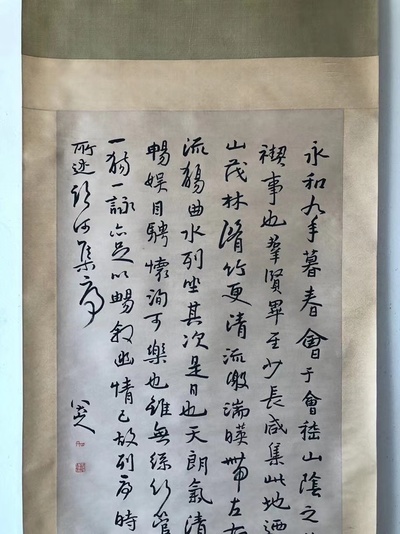 永和九年暮春會于會稽山陰之
禊事也羣賢畢至少長咸集此地迺
山茂林脩竹更清流激湍暎帶左右
流觴曲水列坐其次是日也天朗氣清
暢娛目騁懷洵可樂也雖無絲竹管
一觴一詠亦足以暢敘幽情已故列序時
所述臨河集序
八大山人